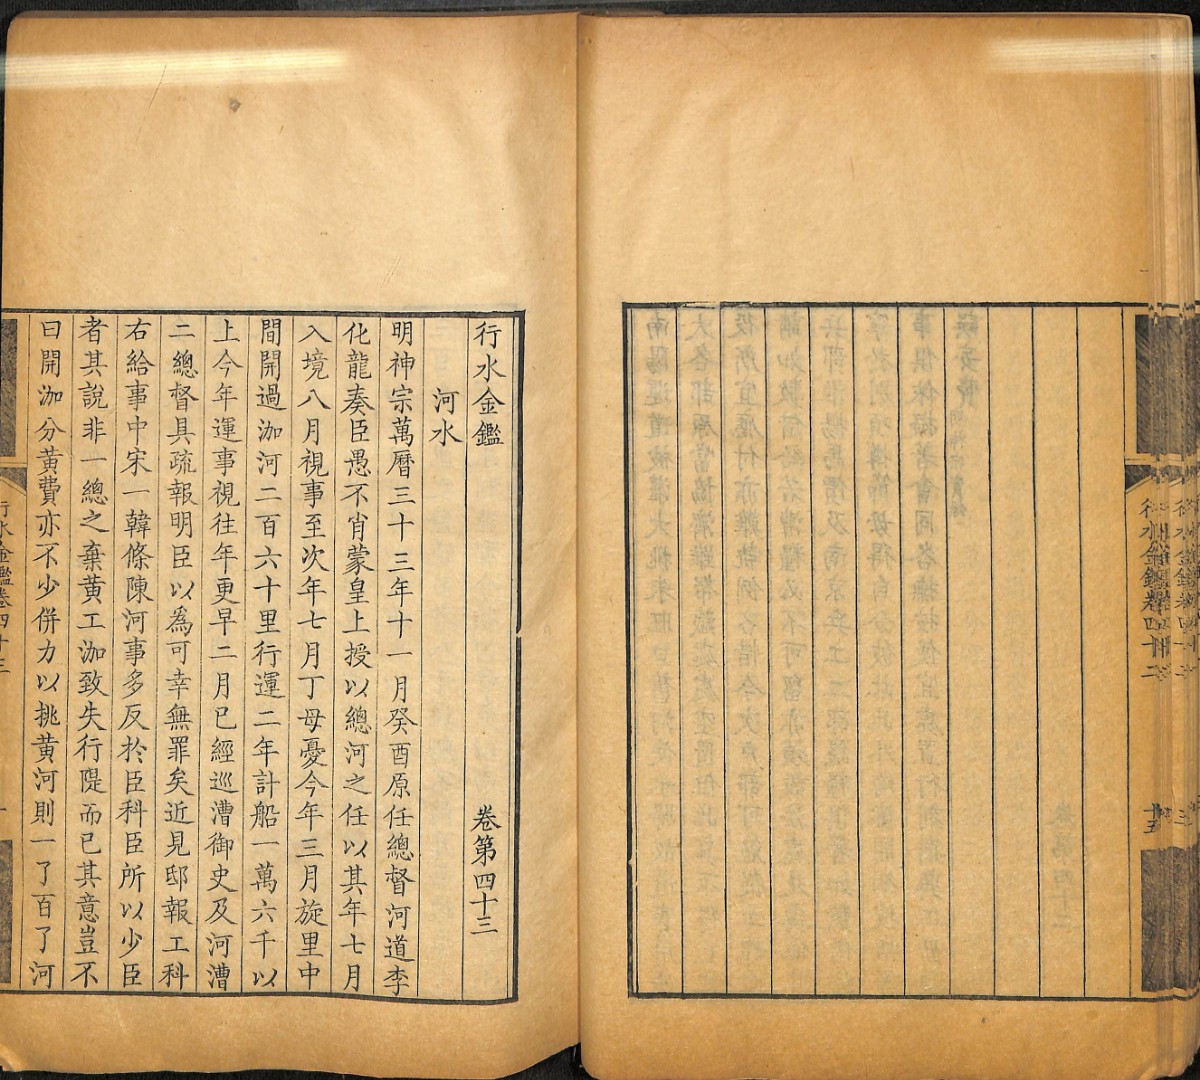 行水金鑑
卷第四十三
河水
明神宗萬曆三十三年十一月癸酉原任總督河道李
化龍奏臣愚不肖蒙皇上授以總河之任以其年七月
入境八月視事至次年七月丁母憂今年三月旋里中
間開過泇河二百六十里行運二年計船一萬六千以
上今年運事視往年更早二月已經巡漕御史及河漕
二總督具疏報明臣以為可幸無罪矣近見邸報工科
右給事中宋一韓條陳河事多反於臣科臣所以少臣
者其說非一總之棄黃工泇致失行隄而已其意豈不
曰開泇分黃費亦不少併力以挑黃河則一了百了河
行水金鑑卷四十三
一
行水金鑑卷四十二
十五